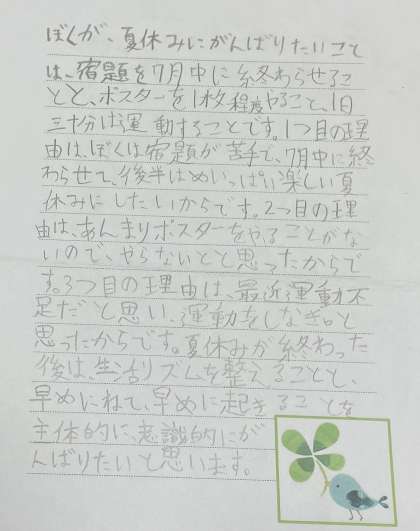 ぼくが、夏休みにがんばりたいこと
は、宿題を7月中に終わらせるこ
とと、ポスターを1枚程度やること、1日
三十分は運動することです。1つ目の理
由は、ぼくは宿題が苦手で、7月中に終
わらせて、後半はめいっぱい楽しい夏
休みにしたいからです。2つ目の理
由は、あんまりポスターをやることがな
いので、やらないとと思ったからで
す。3つ目の理由は、最近運動不
足だと思い、運動をしなきゃと
思ったからです。夏休みが終わった
後は、生活リズムを整えることと、
早めにねて、早めに起きることを
主体的に、意識的にが
んばりたいと思います。